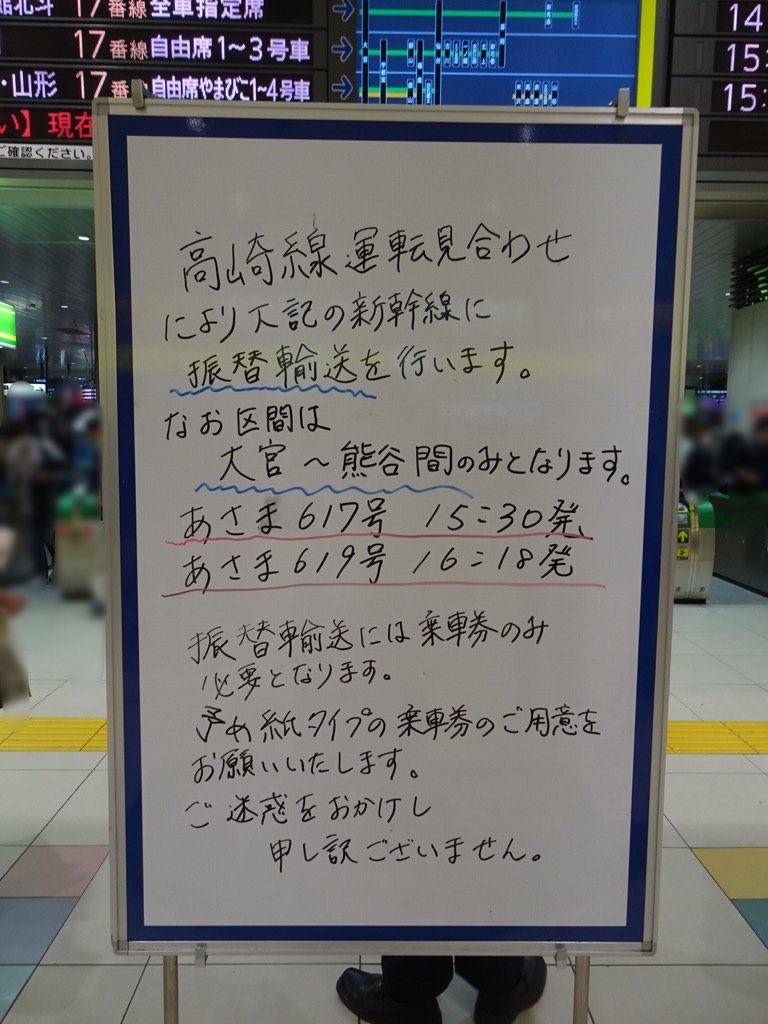 館北斗 17番線 全車指定席
17番線 自由席1～3号車
・山形 17番線 自由席やまびこ1~4号車
い】現在
ご確認ください。
14
15:
15:
高崎線運転見合わせ
により下記の新幹線に
振替輸送を行います。
なお区間は
大宮～熊谷間のみとなります。
あさま617号 15:30発、
あさま619号 16:18発
振替輸送には乗車券のみ
必要となります。
予め紙タイプの乗車券のご用意を
お願いいたします。
ご迷惑をおかけし
申し訳ございません。